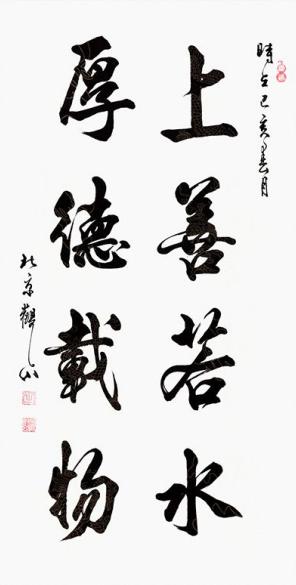 時在己亥春月
上善若水
厚德載物
北京觀山